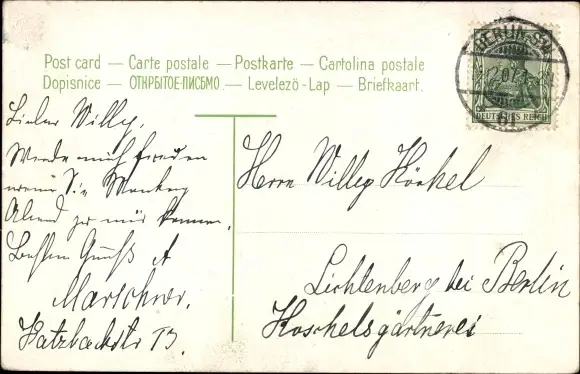 Post card — Carte postale — Postkarte — Cartolina postale
Dopisnice — ОТКРЫТОЕ ПИСЬМО. — Levelező-Lap — Briefkaart.
BERLIN SW
61
DEUTSCHES REICH
Lieber Willy,
Werde mich freuen
wenn Sie Montag
Abend zu mir kommen.
Besten Gruß A
Marschner.
Katzbachstr 13.
Herrn Willy
Lichtenberg bei Berlin
Koschelsgärtnerei